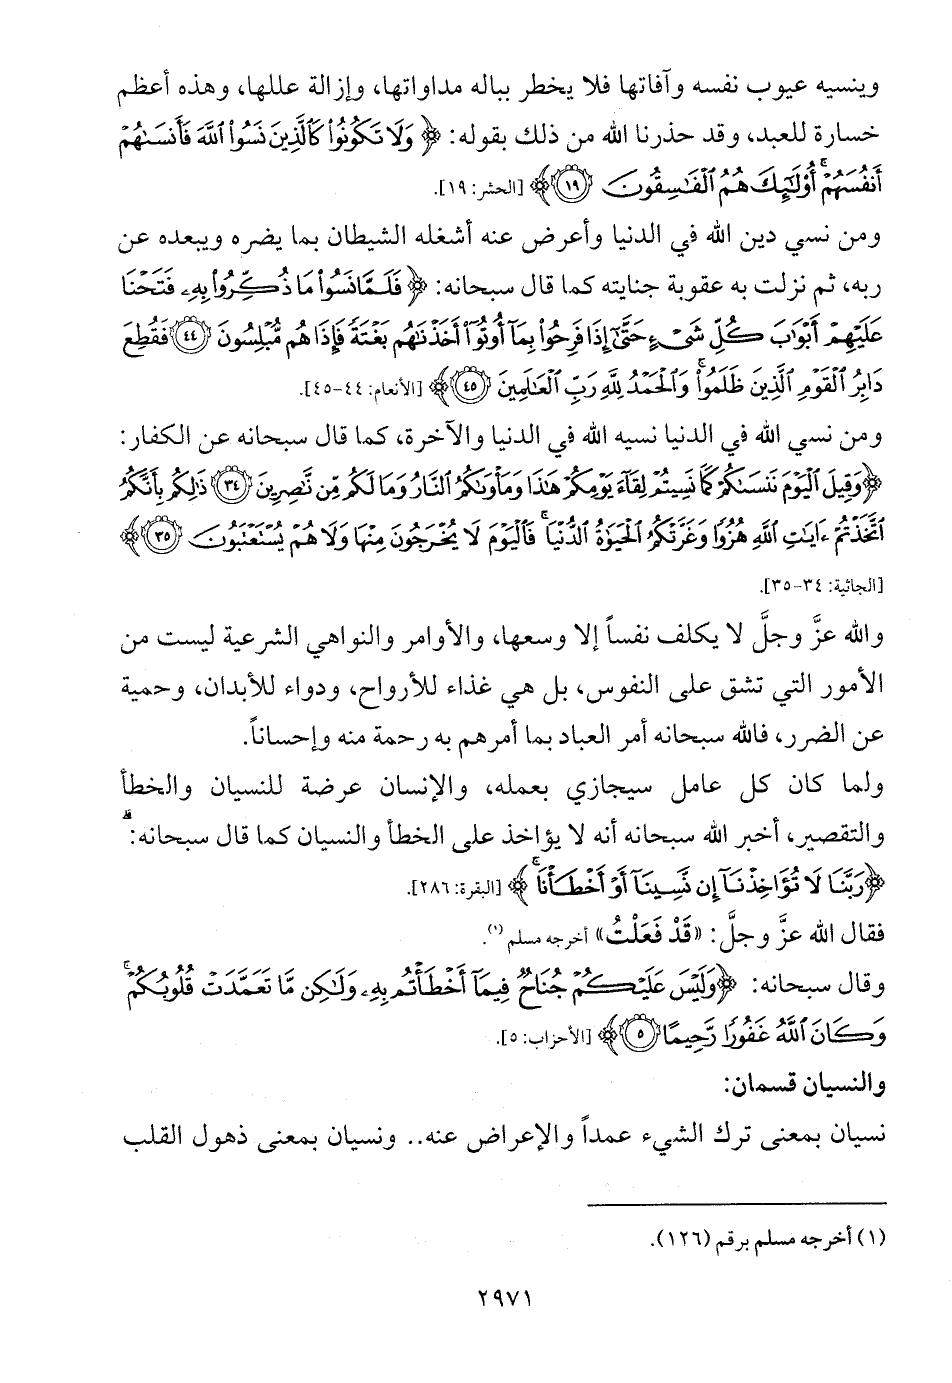 وينسيه عيوب نفسه وآفاتها فلا يخطر بباله مداواتها، وإزالة عللها، وهذه أعظم
خسارة للعبد، وقد حذرنا الله من ذلك بقوله: ﴿وَلَا تَكُونُوا۟ كَٱلَّذِينَ نَسُوا۟ ٱللَّهَ فَأَنسَىٰهُمْ
أَنفُسَهُمْ ۚ أُو۟لَـٰٓئِكَ هُمُ ٱلْفَـٰسِقُونَ ١٩﴾ [الحشر: ١٩].
ومن نسي دين الله في الدنيا وأعرض عنه أشغله الشيطان بما يضره ويبعده عن
ربه، ثم نزلت به عقوبة جنايته كما قال سبحانه: ﴿فَلَمَّا نَسُوا۟ مَا ذُكِّرُوا۟ بِهِۦ فَتَحْنَا
عَلَيْهِمْ أَبْوَٰبَ كُلِّ شَىْءٍ حَتَّىٰٓ إِذَا فَرِحُوا۟ بِمَآ أُوتُوٓا۟ أَخَذْنَـٰهُم بَغْتَةً فَإِذَا هُم مُّبْلِسُونَ ٤٤ فَقُطِعَ
دَابِرُ ٱلْقَوْمِ ٱلَّذِينَ ظَلَمُوا۟ ۚ وَٱلْحَمْدُ لِلَّهِ رَبِّ ٱلْعَـٰلَمِينَ ٤٥﴾ [الأنعام: ٤٤-٤٥].
ومن نسي الله في الدنيا نسيه الله في الدنيا والآخرة، كما قال سبحانه عن الكفار:
﴿وَقِيلَ ٱلْيَوْمَ نَنسَىٰكُمْ كَمَا نَسِيتُمْ لِقَآءَ يَوْمِكُمْ هَـٰذَا وَمَأْوَىٰكُمُ ٱلنَّارُ وَمَا لَكُم مِّن نَّـٰصِرِينَ ٣٤ ذَٰلِكُم بِأَنَّكُمُ
ٱتَّخَذْتُمْ ءَايَـٰتِ ٱللَّهِ هُزُوًا وَغَرَّتْكُمُ ٱلْحَيَوٰةُ ٱلدُّنْيَا ۚ فَٱلْيَوْمَ لَا يُخْرَجُونَ مِنْهَا وَلَا هُمْ يُسْتَعْتَبُونَ ٣٥﴾
[الجاثية: ٣٤-٣٥].
والله عزَّ وجلَّ لا يكلف نفساً إلا وسعها، والأوامر والنواهي الشرعية ليست من
الأمور التي تشق على النفوس، بل هي غذاء للأرواح، ودواء للأبدان، وحمية
عن الضرر، فالله سبحانه أمر العباد بما أمرهم به رحمة منه وإحساناً.
ولما كان كل عامل سيجازي بعمله، والإنسان عرضة للنسيان والخطأ
والتقصير، أخبر الله سبحانه أنه لا يؤاخذ على الخطأ والنسيان كما قال سبحانه:
﴿رَبَّنَا لَا تُؤَاخِذْنَآ إِن نَّسِينَآ أَوْ أَخْطَأْنَا ۚ﴾ [البقرة: ٢٨٦].
فقال الله عزَّ وجلَّ: «قَدْ فَعَلْتُ» أخرجه مسلم (١).
وقال سبحانه: ﴿وَلَيْسَ عَلَيْكُمْ جُنَاحٌ فِيمَآ أَخْطَأْتُم بِهِۦ وَلَـٰكِن مَّا تَعَمَّدَتْ قُلُوبُكُمْ ۚ
وَكَانَ ٱللَّهُ غَفُورًا رَّحِيمًا ٥﴾ [الأحزاب: ٥].
والنسيان قسمان:
نسيان بمعنى ترك الشيء عمداً والإعراض عنه.. ونسيان بمعنى ذهول القلب
(١) أخرجه مسلم برقم (١٢٦).
٢٩٧١